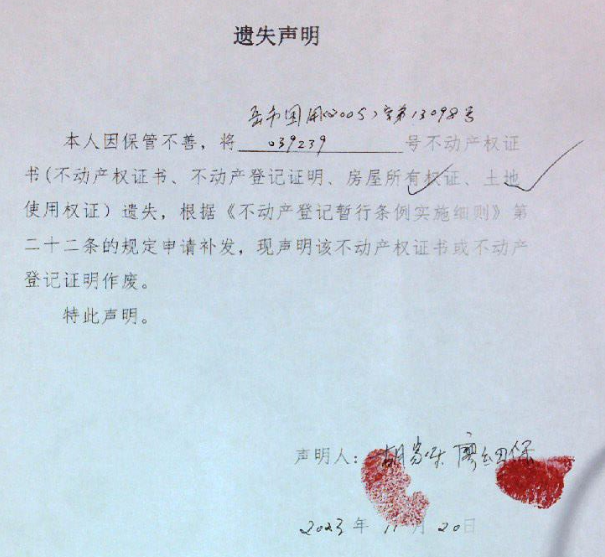 遗失声明
岳市国用(2005)字第13098号
本人因保管不善，将 039239 号不动产权证
书(不动产权证书、不动产登记证明、房屋所有权证、土地
使用权证）遗失，根据《不动产登记暂行条例实施细则》第
二十二条的规定申请补发，现声明该不动产权证书或不动产
登记证明作废。
特此声明。
声明人：胡 廖细保
2023年11月20日